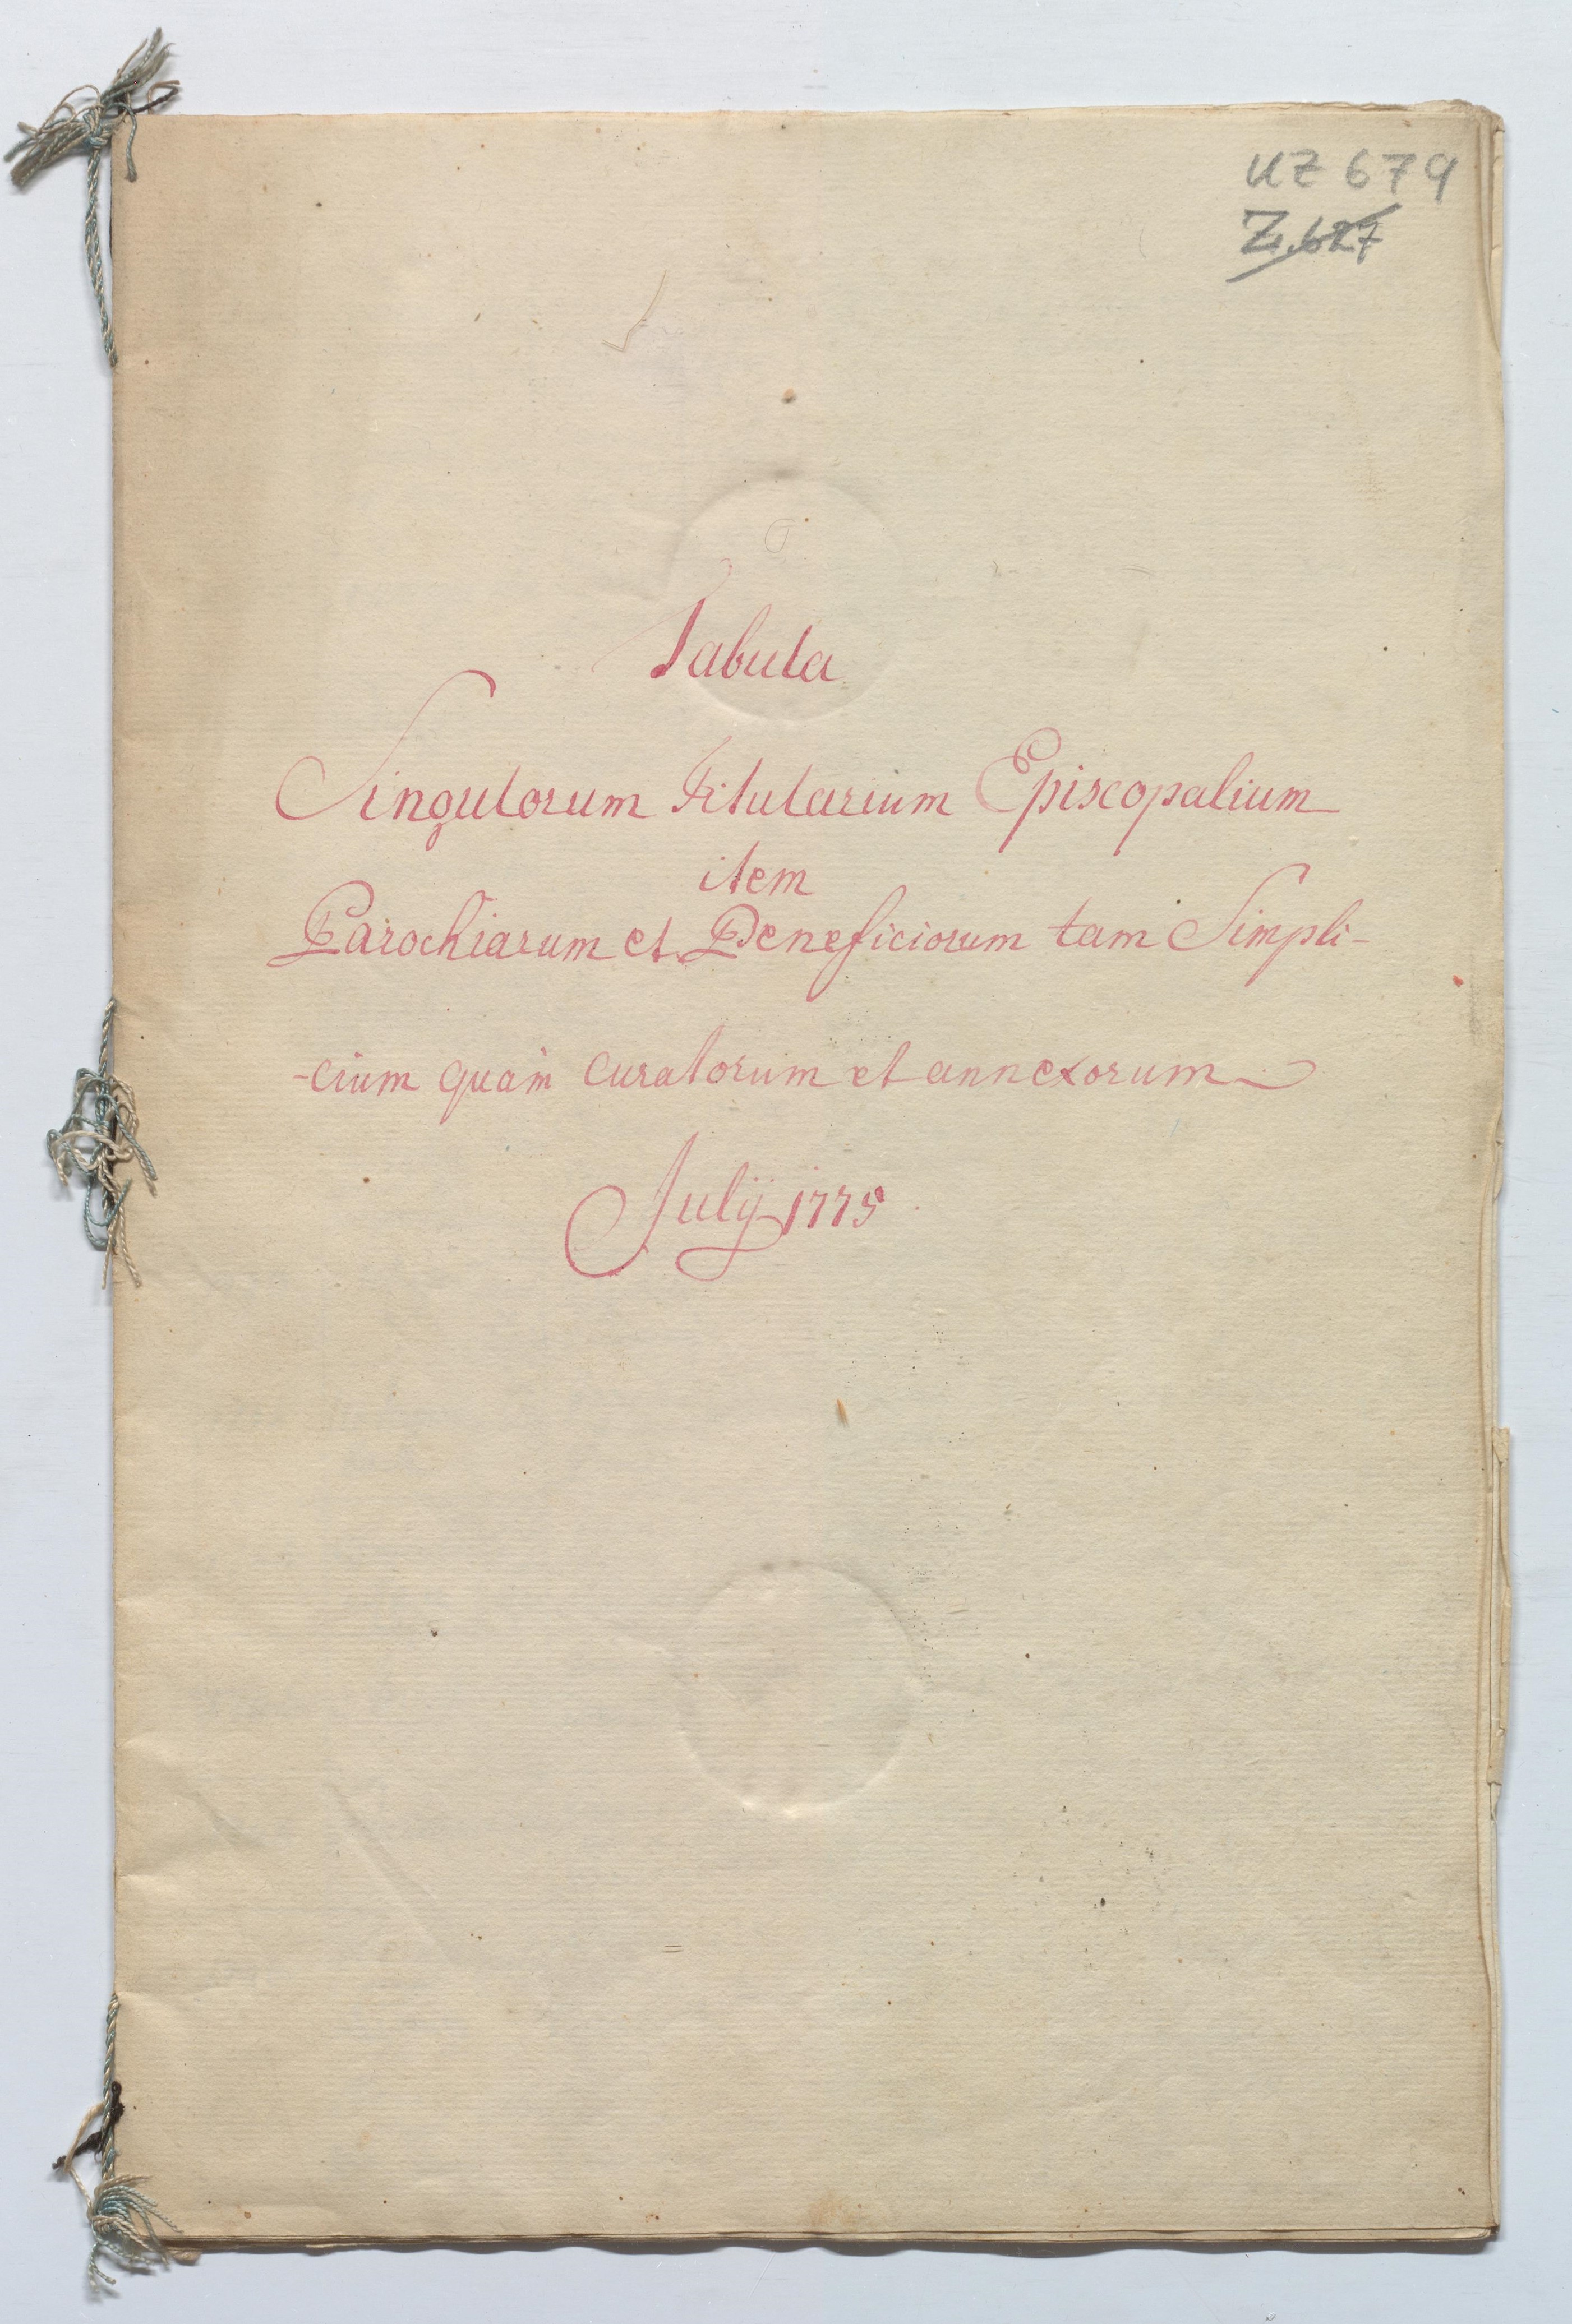 UZ 679
Z. 627
Tabula
Singulorum Titularium Episcopalium
item
Parochiarum et Beneficiorum tam Simpli-
-cium quam curatorum et annexorum
Julÿ 1775